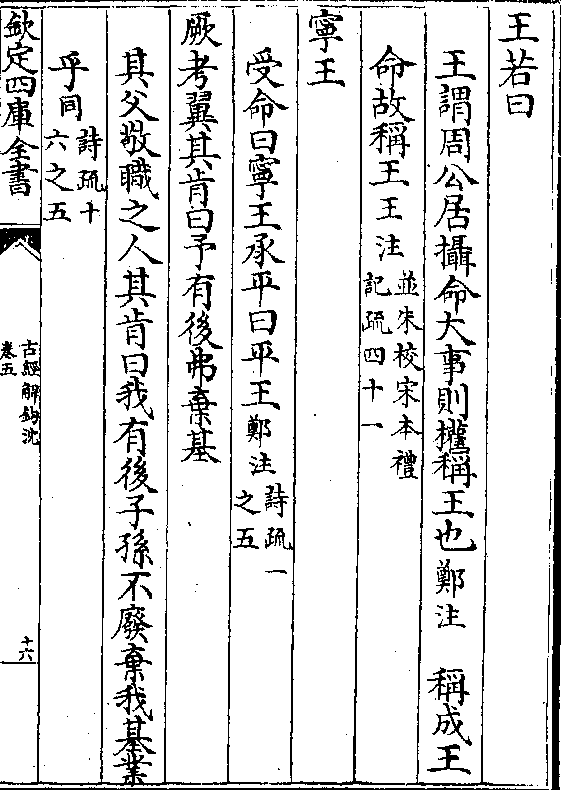 王若曰
王謂周公居攝命大事則權稱王也鄭注　稱成王
命故稱王王注並朱校宋本禮
記疏四十一
寧王
受命曰寧王承平曰平王鄭注詩疏一
之五
厥考翼其肯曰予有後弗棄基
其父敬職之人其肯曰我有後子孫不廢棄我基業
乎同詩疏十
六之五
欽定四庫全書
古經解鉤沈
卷五
十六